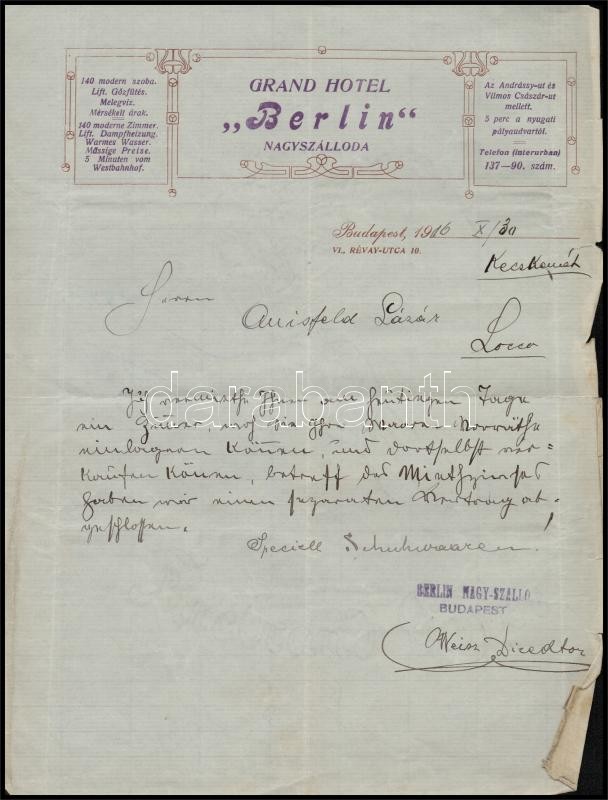 140 modern szoba.
Lift. Gőzfűtés.
Melegvíz.
Mérsékelt árak.
140 moderne Zimmer.
Lift. Dampfheizung.
Warmes Wasser.
Mässige Preise.
5 Minuten vom
Westbahnhof.
GRAND HOTEL
„Berlin“
NAGYSZÁLLODA
Az Andrássy-ut és
Vilmos Császár-ut
mellett.
5 perc a nyugati
pályaudvartól.
Telefon (interurban)
137—90. szám.
Budapest, 1916 X/30
VI., RÉVAY-UTCA 10.
Kecskemét
Herrn
Anisfeld Lázár
Locco
Ich vermiethe Ihnen am heutigen Tage
ein Zimmer, wo Sie Ihre Waaren Vorräthe
einlagern können, und dortselbst ver-
kaufen können, betreff des Miethzinses
haben wir einen separaten Vertrag ab-
geschlossen.
Speciell Schuhwaaren!
darabanth
BERLIN NAGY-SZÁLLO
BUDAPEST
Weisz Director